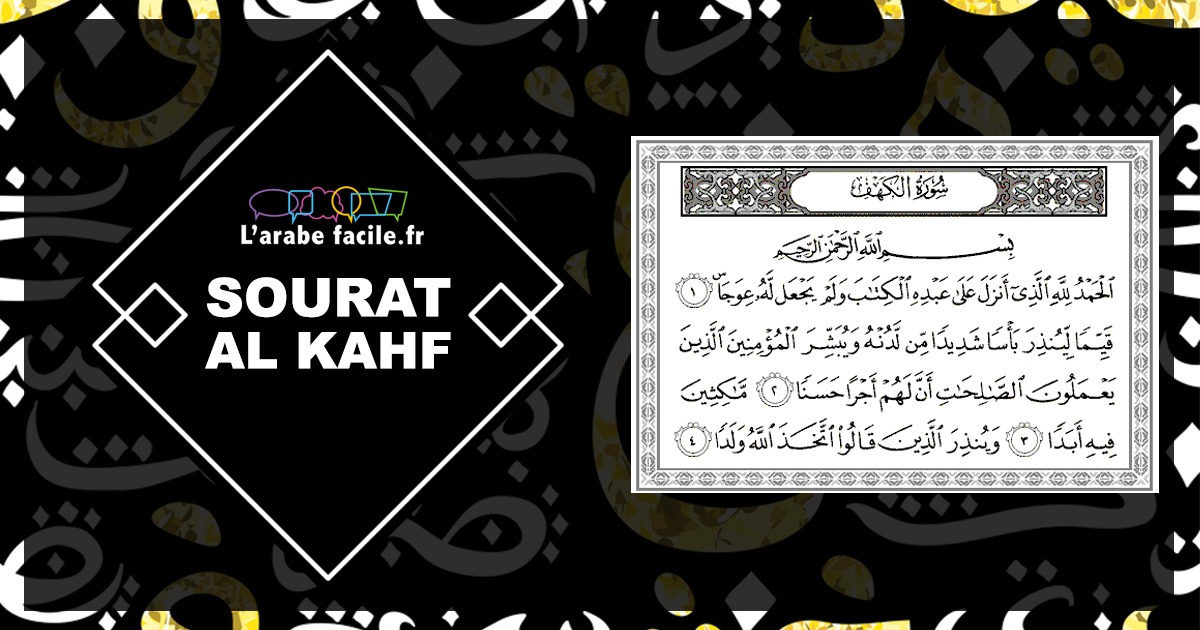 L'arabe facile.fr
SOURAT
AL KAHF
سُورَةُ الكَهْفِ
بِسْمِ ٱللَّهِ ٱلرَّحْمَٰنِ ٱلرَّحِيمِ
ٱلْحَمْدُ لِلَّهِ ٱلَّذِىٓ أَنزَلَ عَلَىٰ عَبْدِهِ ٱلْكِتَٰبَ وَلَمْ يَجْعَل لَّهُۥ عِوَجَاۜ ١
قَيِّمًا لِّيُنذِرَ بَأْسًا شَدِيدًا مِّن لَّدُنْهُ وَيُبَشِّرَ ٱلْمُؤْمِنِينَ ٱلَّذِينَ
يَعْمَلُونَ ٱلصَّٰلِحَٰتِ أَنَّ لَهُمْ أَجْرًا حَسَنًا ٢ مَّٰكِثِينَ
فِيهِ أَبَدًا ٣ وَيُنذِرَ ٱلَّذِينَ قَالُوا۟ ٱتَّخَذَ ٱللَّهُ وَلَدًا ٤